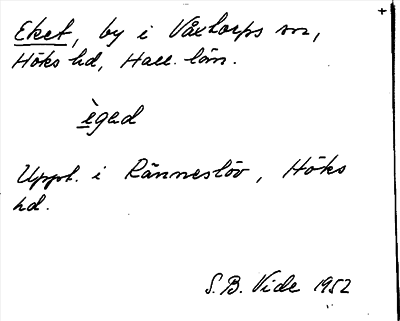 Eket, by i Våxtorps sn,
Höks hd, Hall. län.
ègad
Uppt. i Ränneslöv, Höks
hd.
S.B. Vide 1952